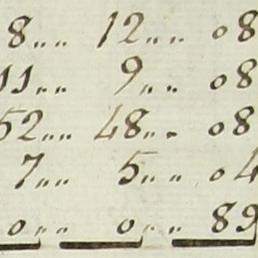 8„„ 12„„ 08
11„„ 9„„ 08
52„„ 48„„ 08
7„„ 5„„ 04
0„„ 0„„ 89